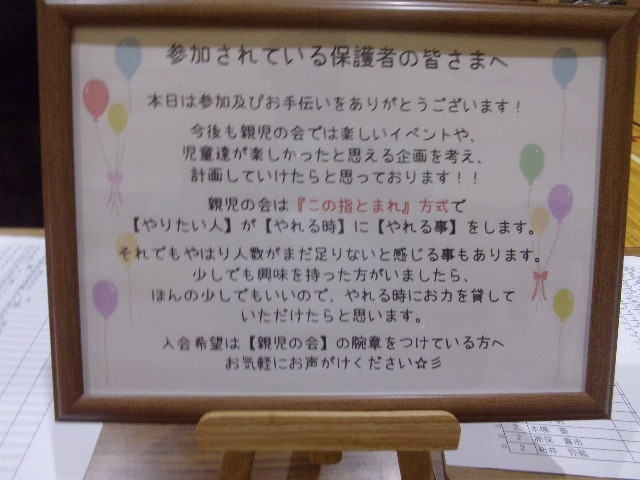 参加されている保護者の皆さまへ
本日は参加及びお手伝いをありがとうございます！
今後も親児の会では楽しいイベントや、
児童達が楽しかったと思える企画を考え、
計画していけたらと思っております！！
親児の会は『この指とまれ』方式で
【やりたい人】が【やれる時】に【やれる事】をします。
それでもやはり人数がまだ足りないと感じる事もあります。
少しでも興味を持った方がいましたら、
ほんの少しでもいいので、やれる時にお力を貸して
いただけたらと思います。
入会希望は【親児の会】の腕章をつけている方へ
お気軽にお声がけください☆彡
2
2
2